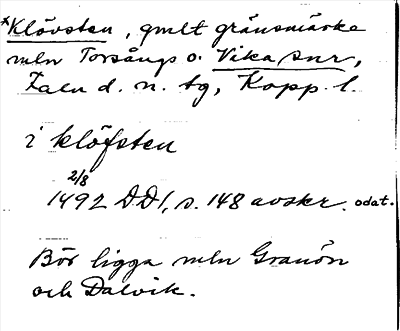 *Klövsten, gmlt gränsmärke
mln Torsångs o. Vika snr,
Falu d. n. tg, Kopp. l.
i klöfsten
2/8
1492 DD1, s. 148 avskr. odat.
Bör ligga mln Granön
och Dalvik.